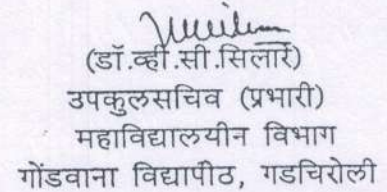 (डॉ.व्ही.सी.सिलारे)
उपकुलसचिव (प्रभारी)
महाविद्यालयीन विभाग
गोंडवाना विद्यापीठ, गडचिरोली